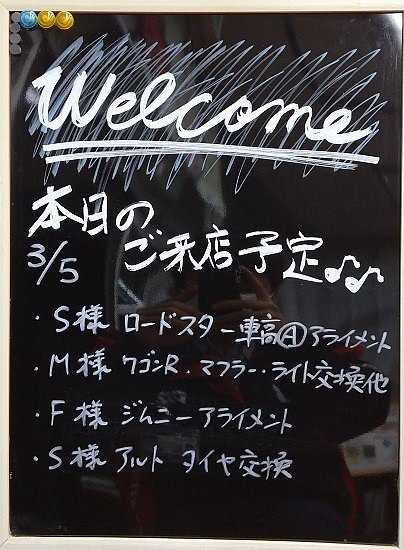 Welcome
本日の
ご来店予定♪♪
3/5
・S様 ロードスター車高Ⓐアライメント
・M様 ワゴンR・マフラー・ライト交換他
・F様 ジムニーアライメント
・S様 アルト タイヤ交換